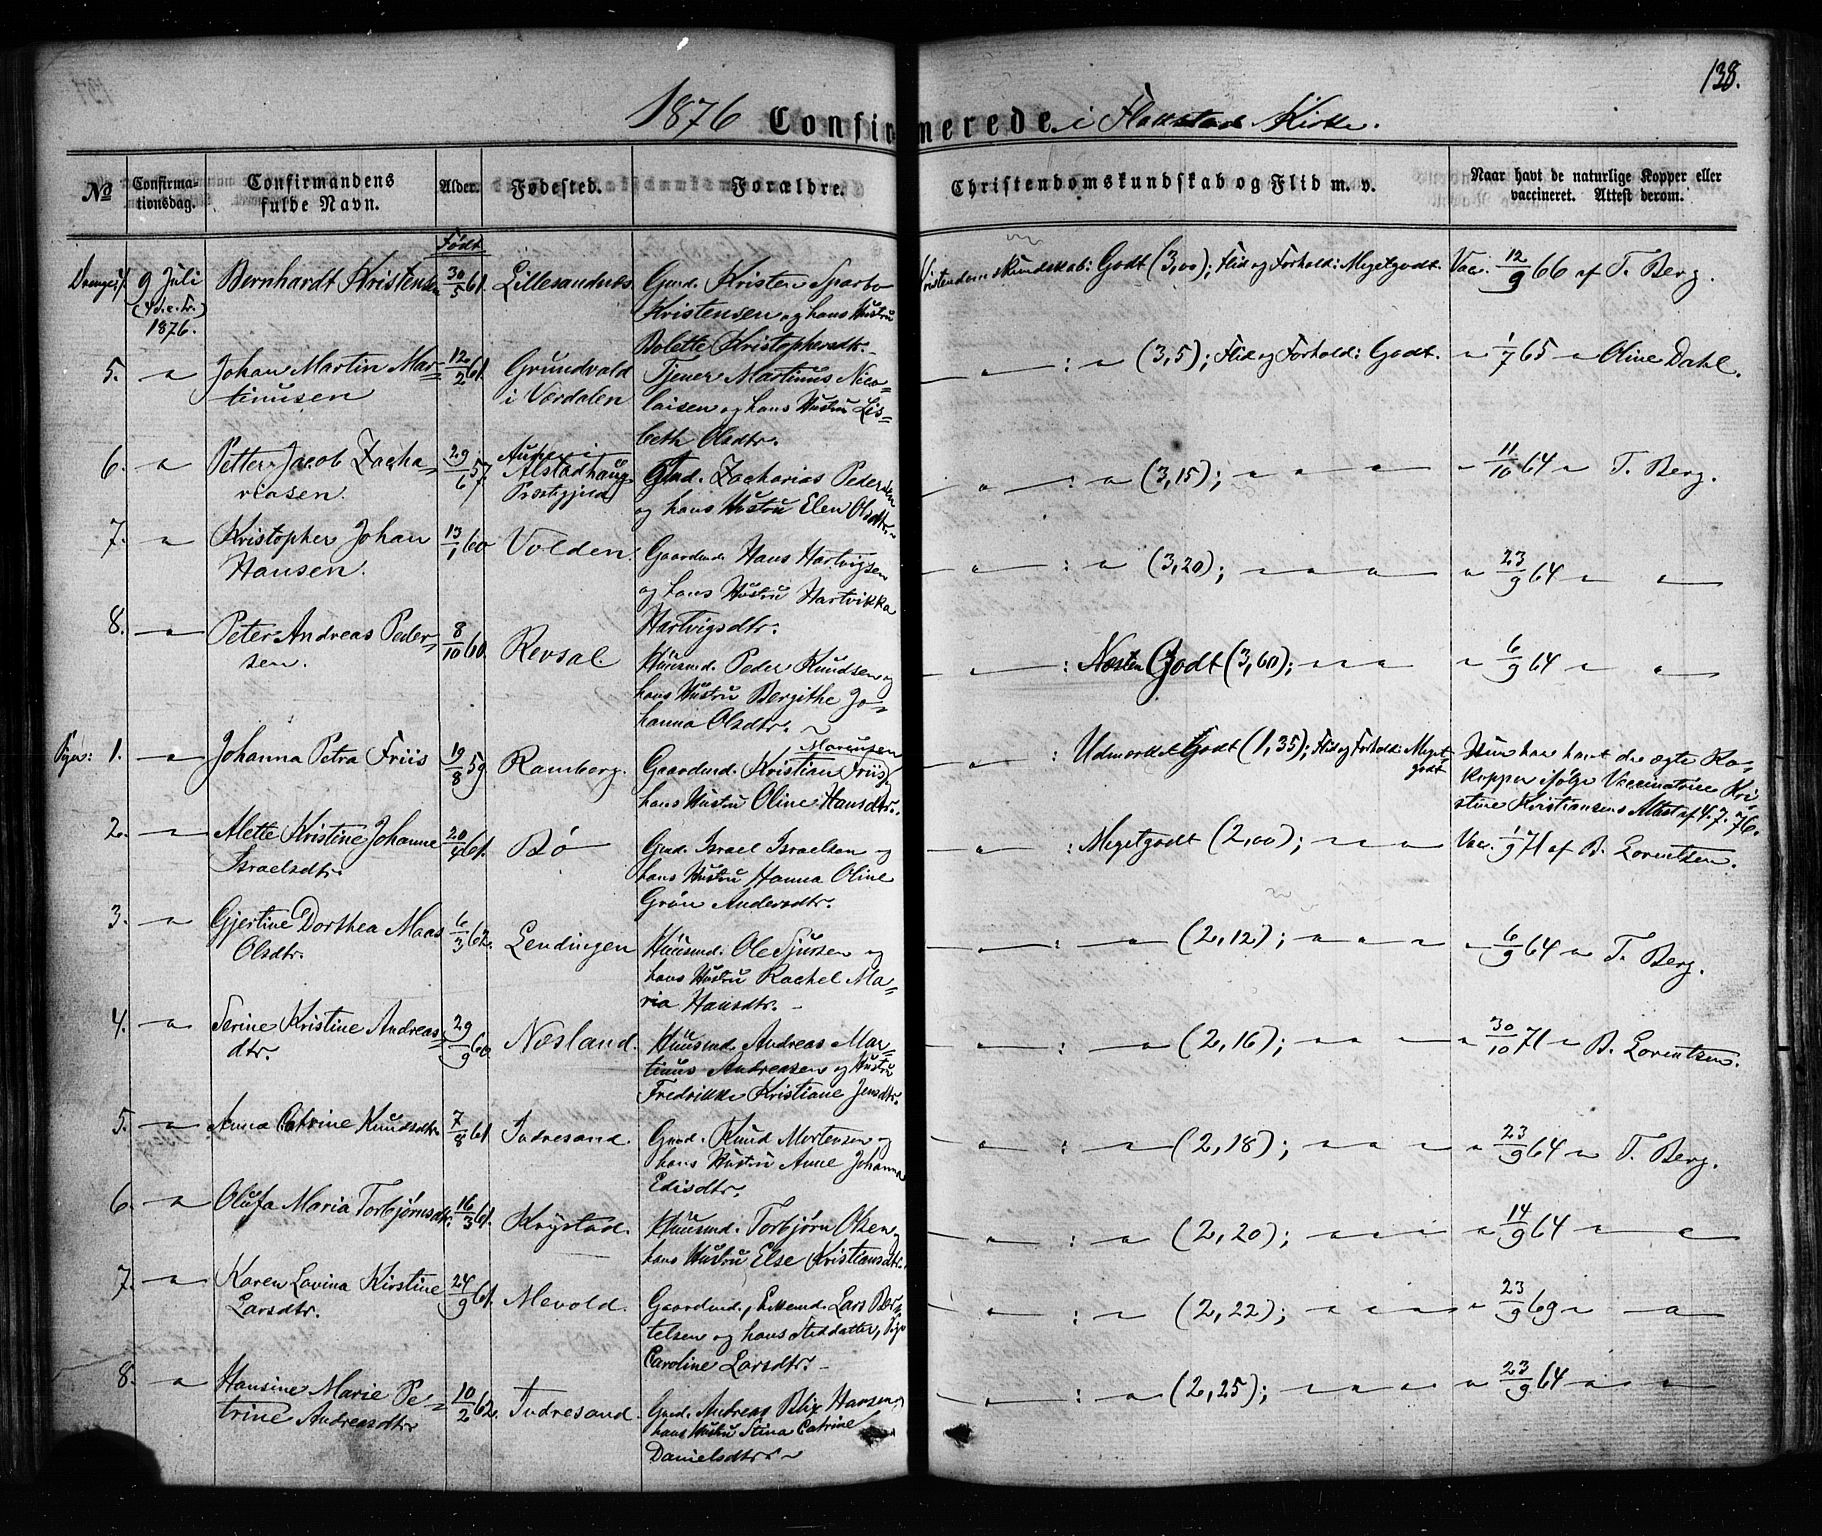 138.
1876 Confirmerede i Flakstad Kirke.
No
Confirma-
tionsdag.
Confirmandens
fulde Navn.
Alder.
Fødested.
Forældre.
Christendomskundskab og Flid m. v.
Naar havt de naturlige Kopper eller
vaccineret. Attest derom.
Født
Drenge: 9 Juli Bernhardt Kristensen 30/5 61. Lillesandnes Gmd. Kristen Sparbo Kristendomskundskab: Godt (3,00); Flid og Forhold: Megetgodt. Vac. 12/9 66 af T. Berg.
(4 S. e. Tr.) Kristensen og hans Hustru
1876. Bolette Kristophersdtr.
5. " Johan Martin Mar= 12/2 61. Grundvald Tjener Martinus Nico= " : " (3,5); Flid og Forhold: Godt. " 1/7 65 " Oline Dahl.
tinusen i Værdalen laisen og hans Hustru Lis=
beth Olsdtr.
6. " Petter Jacob Zacha= 29/6 57. i Gmd. Zacharias Pedersen " : " (3,15); " " " " 11/10 64 " T. Berg.
riasen. Alstadhaug og hans Hustru Elen Olsdtr.
Præstegjeld
7. " Kristopher Johan 13/1 60 Volden. Gaardmd. Hans Hartvigsen " : " (3,20); " " " " 23/9 64 " "
Hansen. og hans Hustru Hartvikka
Hartvigsdtr.
8. " Peter Andreas Peder= 8/10 60. Revsal. Huusmd. Peder Knudsen og " : Næsten Godt (3,60); " " " " 6/9 64 " "
sen. hans Hustru Bergithe Jo=
hanna Olsdtr.
Piger: 1. " Johanna Petra Friis 19/8 59 Ramberg. Gaardmd. Kristian Friis " : Udmærket Godt (1,35); Flid og Forhold: Meget Hun har havt de ægte Ko=
hans Hustru Oline Hansdtr. godt kopper ifølge Vaccinatrice Kri=
stine Kristiansens Attest af 4.7.76.
2. " Alette Kristine Johanne 20/4 61. Bø Gmd. Israel Israelsen og " : Megetgodt (2,00); " " " Vac. 1/9 71 af B. Lorentsen.
Israelsdtr. hans Hustru Hanna Oline
Grøn Andersdtr.
3. " Gjertine Dorthea Maas 6/3 62. Lendingen Huusmd. Ole Sjursen og " : " (2,12); " " " " 6/9 64 " T. Berg.
Olsdtr. hans Hustru Rachel Ma=
ria Hansdtr.
4. " Serine Kristine Andreas= 29/9 60 Næsland. Huusmd. Andreas Mar= " : " (2,16); " " " " 30/10 71 " B. Lorentsen.
dtr. tinus Andreasen og Hustru
Fredrikke Kristiane Jensdtr.
5. " Anna Catrine Knudsdtr. 7/8 61. Indresand. Gmd. Knud Mortensen og " : " (2,18); " " " " 23/9 64 " T. Berg.
hans Hustru Anne Johanna
Edisdtr.
6. " Olufa Maria Torbjørnsdtr. 16/3 61. Krystad. Huusmd. Torbjørn Olsen og " : " (2,20); " " " " 14/9 64 " "
hans Hustru Else Kristiansdtr.
7. " Karen Lovina Kirstine 24/9 61. Mevold. Gaardmd., Enkemd. Lars Ber= " : " (2,22); " " " " 23/9 69 " "
Larsdtr. telsen og hans Steddatter, Pige
Caroline Larsdtr.
8. " Hansine Marie Pe= 10/2 62. Indresand. Gmd. Andreas Blix Hansen, " : " (2,25); " " " " 23/9 64 " "
trine Andreasdtr. hans Hustru Stina Catrine
Danielsdtr.